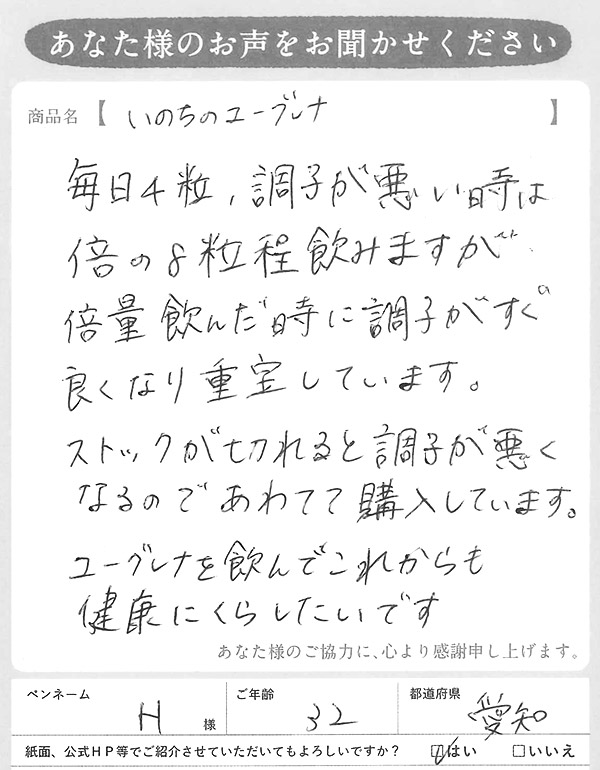 あなた様のお声をお聞かせください
商品名【いのちのユーグレナ】
毎日4粒,調子が悪い時は
倍の8粒程飲みますが
倍量飲んだ時に調子がすぐ
良くなり重宝しています。
ストックが切れると調子が悪く
なるのであわてて購入しています。
ユーグレナを飲んでこれからも
健康にくらしたいです
あなた様のご協力に、心より感謝申し上げます。
ペンネーム H 様 ご年齢 32 都道府県 愛知
紙面、公式HP等でご紹介させていただいてもよろしいですか? ☑はい □いいえ